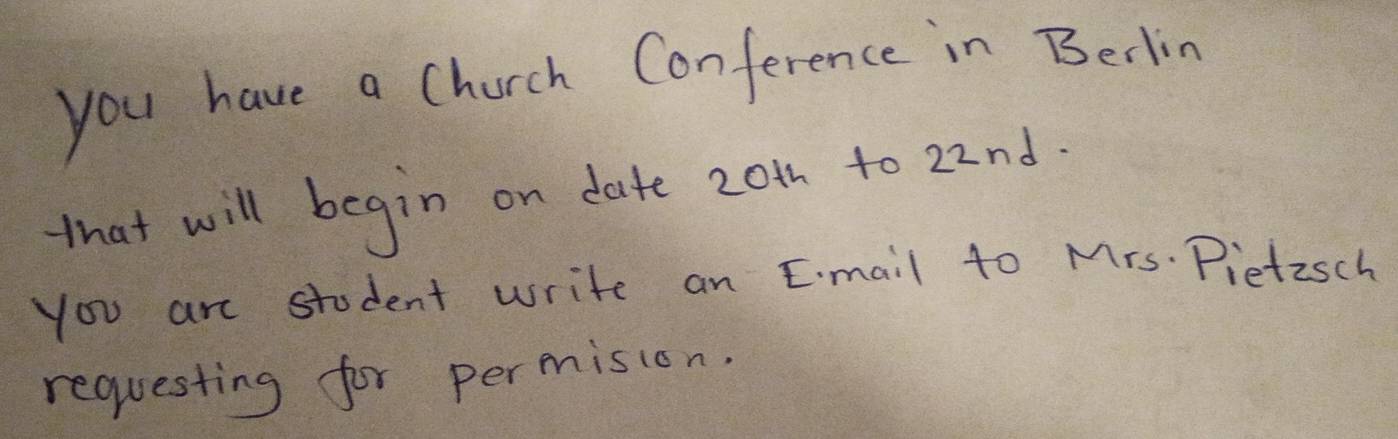 you have a Church Conference in Berlin
that will begin on date 20th to 22nd.
you are student write an E.mail to Mrs. Pietzsch
requesting for permision.